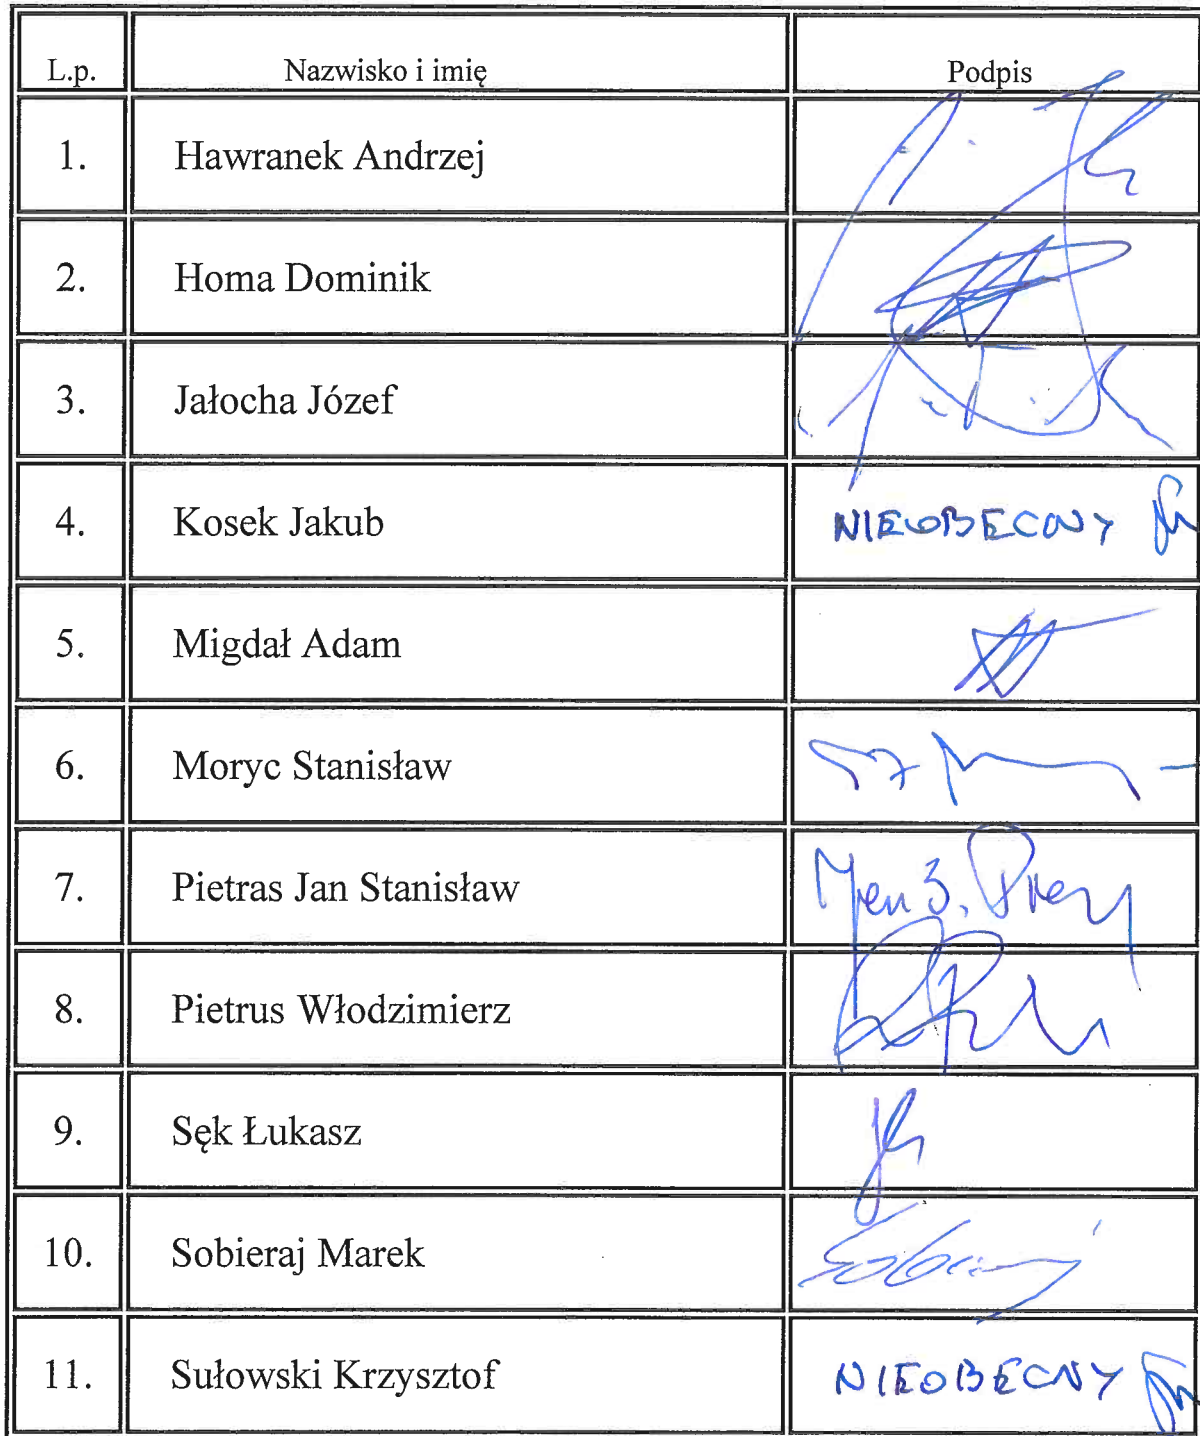 L.p. Nazwisko i imię Podpis
1. Hawranek Andrzej
2. Homa Dominik
3. Jałocha Józef
4. Kosek Jakub NIEOBECNY
5. Migdał Adam
6. Moryc Stanisław
7. Pietras Jan Stanisław
8. Pietrus Włodzimierz
9. Sęk Łukasz
10. Sobieraj Marek
11. Sułowski Krzysztof NIEOBECNY